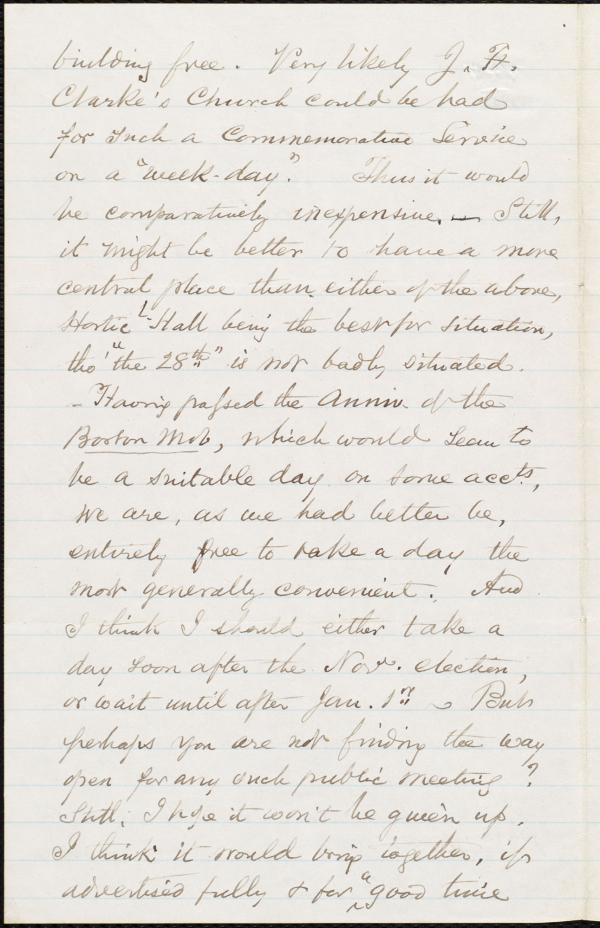 building free. Very likely J. F.
Clarke's Church could be had
for such a Commemorative Service
on a "week-day." Thus it would
be comparatively inexpensive. — Still,
it might be better to have a more
central place than either of the above,
Hortic'l Hall being the best for situation,
tho' "the 28th" is not badly situated.
- Having passed the Anniv. of the
Boston Mob, which would seem to
be a suitable day on some accts,
we are, as we had better be,
entirely free to take a day the
most generally convenient. And
I think I should either take a
day soon after the Nov. election,
or wait until after Jan. 1st ~ But
perhaps you are not finding the way
open for any such public meeting?
Still, I hope it won't be given up.
I think it would bring together, if
advertised fully & for a good time